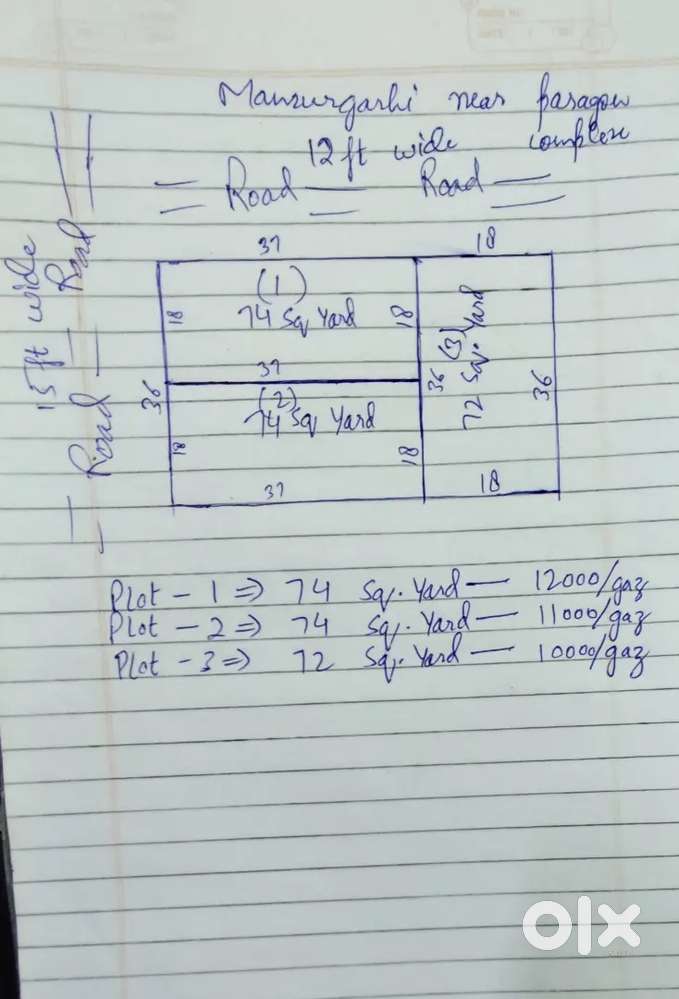 Manzurgarhi near paragon
12 ft wide complex
Road Road
15 ft wide
Road Road
37 18
(1)
18 74 Sq Yard 18
37
36
(2)
74 Sq Yard
18 18
37 18
36 (3) 36
72 Sq. Yard
Plot - 1 ⇒ 74 Sq. Yard — 12000/gaz
Plot - 2 ⇒ 74 Sq. Yard — 11000/gaz
Plot - 3 ⇒ 72 Sq. Yard — 10000/gaz
olx